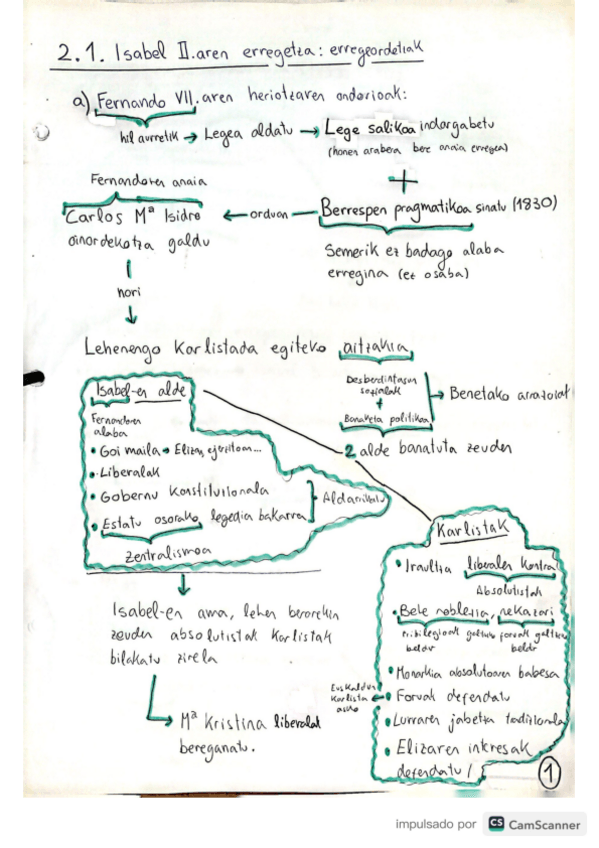 2.1. Isabel II.aren erregetza: erregeordetiak
a) Fernando VII.aren heriotzaren ondorioak:
hil aurretik → Legea aldatu → Lege salikoa indargabetu
(honen arabera bere anaia erregea)
+
Fernandoren anaia
Carlos Mª Isidro ← orduan — Berrespen pragmatikoa sinatu (1830)
oinordekotza galdu
Semerik ez badago alaba
erregina (ez osaba)
nori
Lehenengo Karlistada egiteko aitzakia
Desberdintasun
sozialak
+
Banaketa politikoa
→ Benetako arrazoiak
2 alde banatuta zeuden
Isabel-en alde
Fernandoren
alaba
• Goi maila → Eliza, ejerzitoa...
• Liberalak
• Gobernu Konstituzionala
• Estatu osorako legedia bakarra
Aldarrikatu
Zentralismoa
Isabel-en ama, lehen berarekin
zeuden absolutistak Karlistak
bilakatu zirela
Mª Kristina liberalak
bereganatu.
Karlistak
• Iraultza liberalen kontra
Absolutistak
• Behe noblezia, nekazari
pribilegioak galtzeko foruak galtzeko
beldur beldur
• Monarkia absolutoaren babesa
• Foruak defendatu
Euskaldun
Karlista
asko
• Lurraren jabetza tradizionala
• Elizaren interesak
defendatu
1
impulsado por CS CamScanner